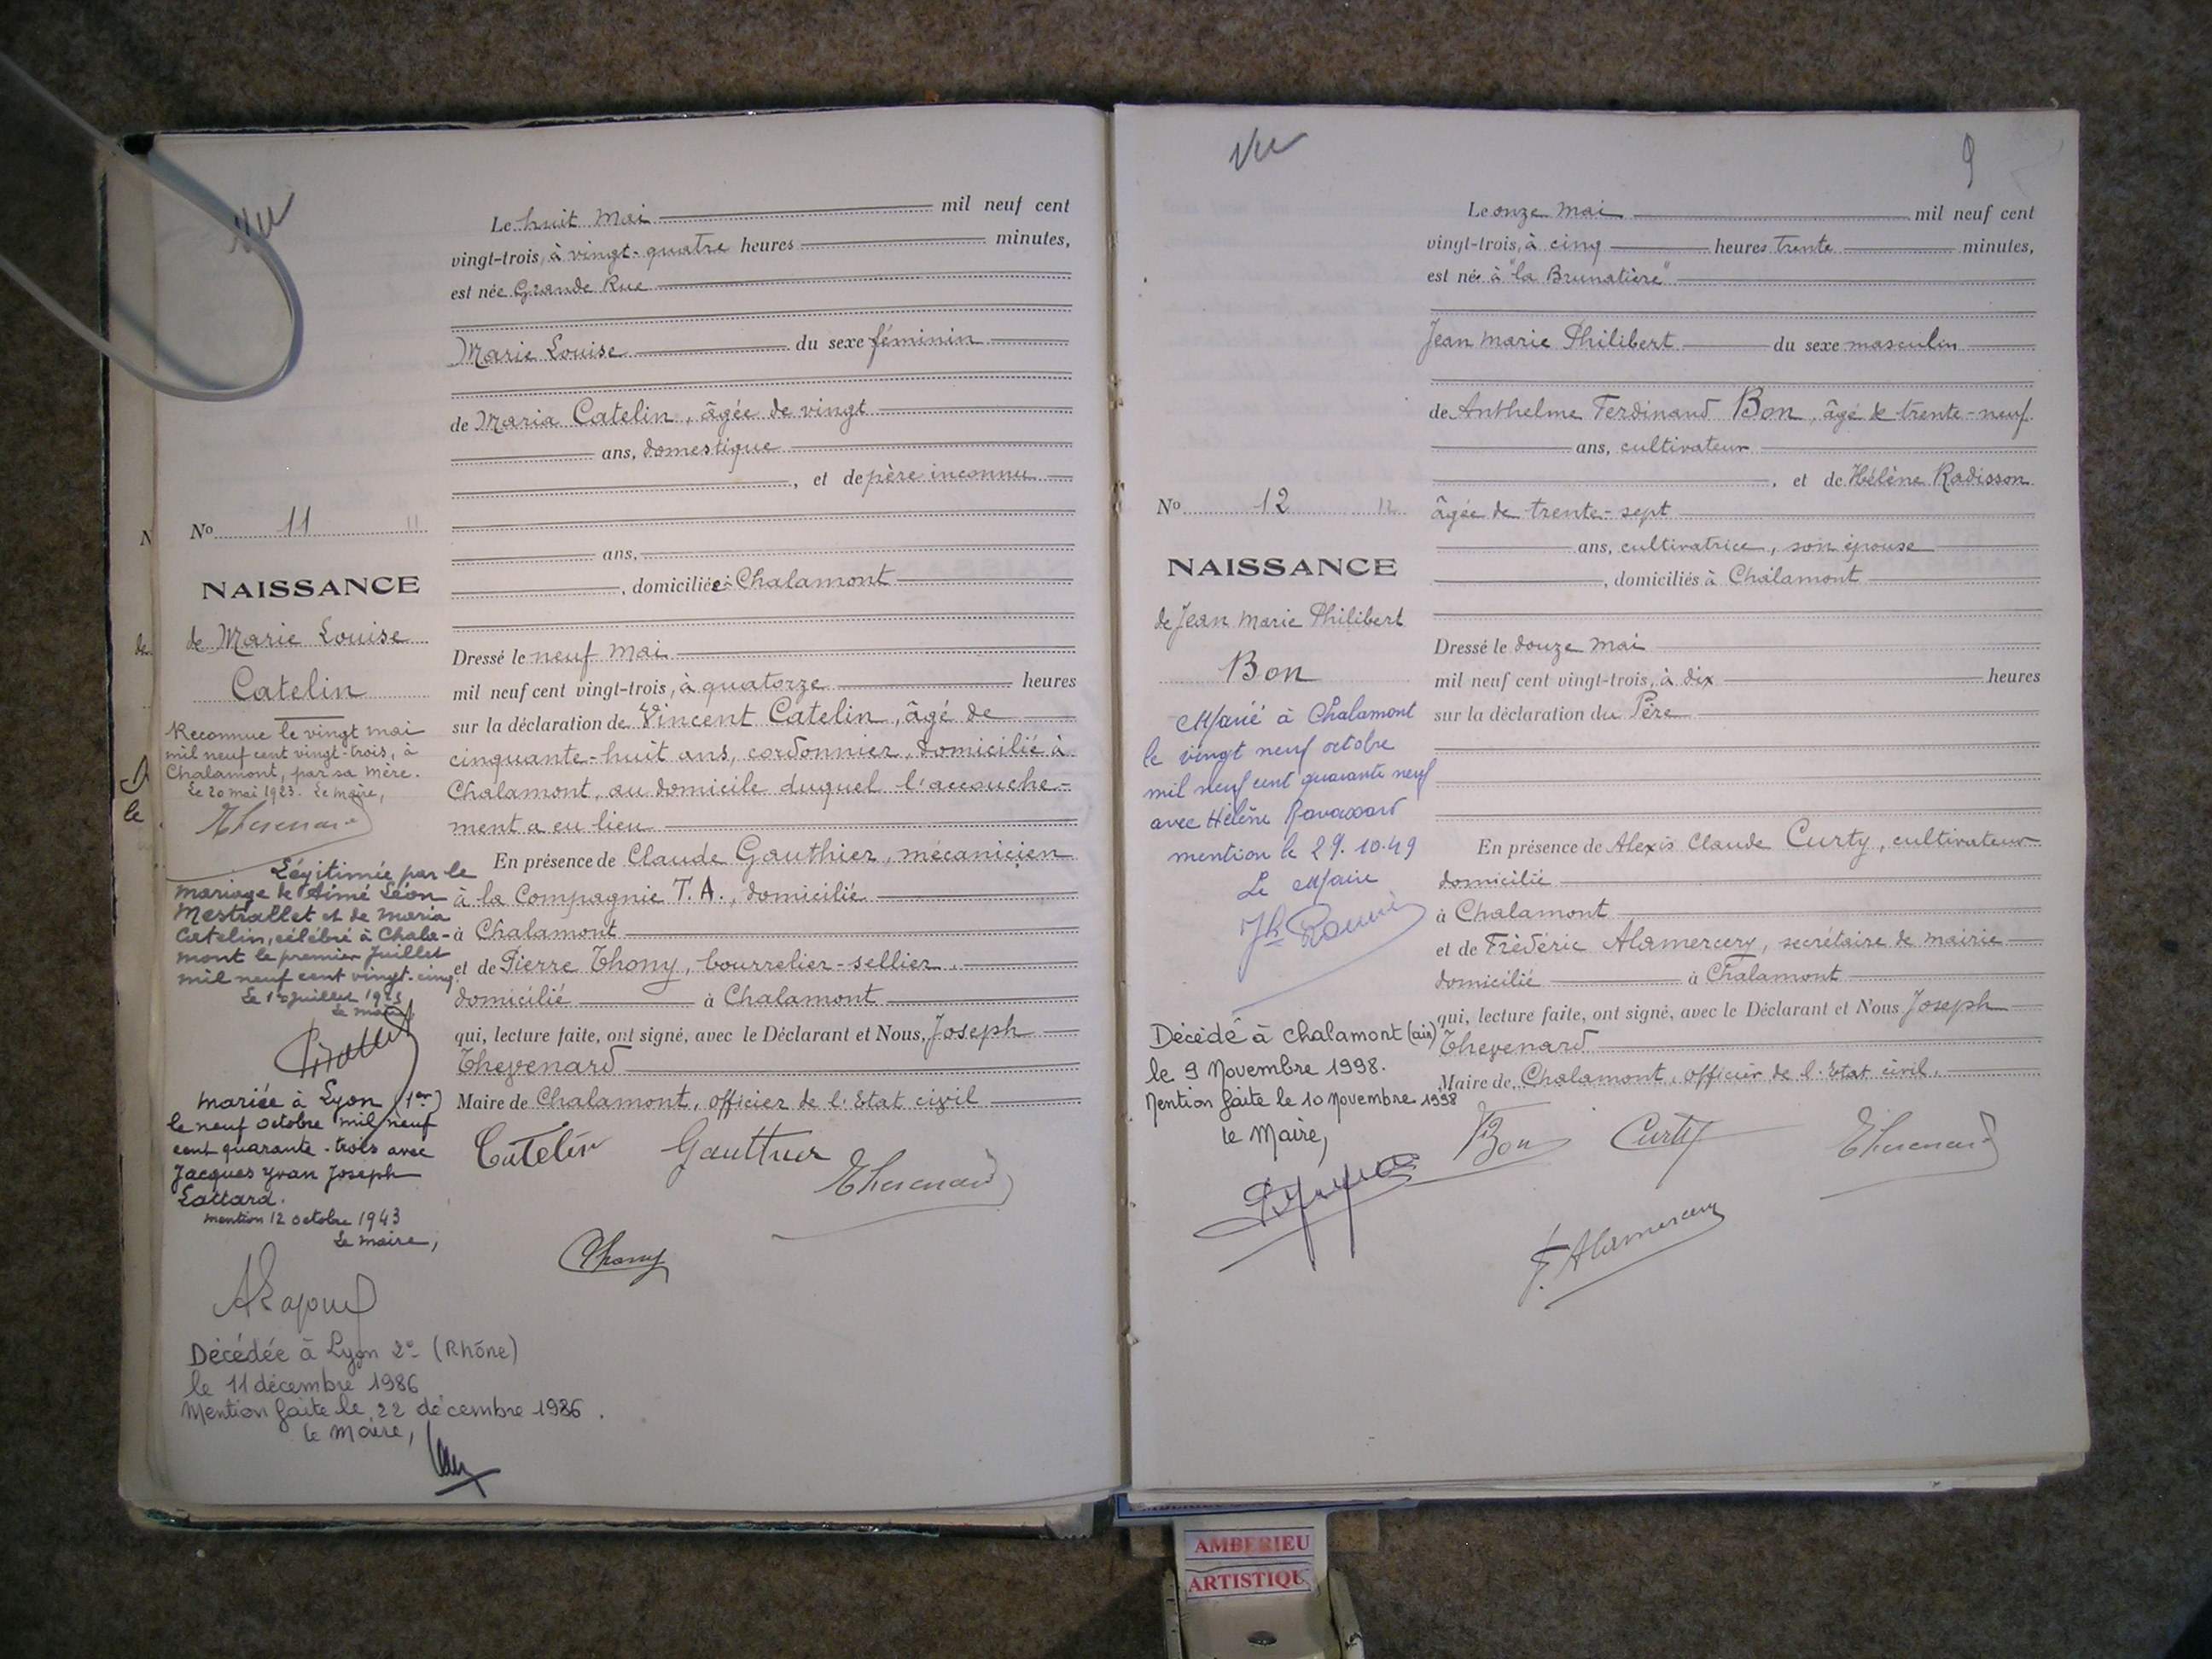 Vu
Le huit Mai mil neuf cent
vingt-trois, à vingt-quatre heures minutes,
est née Grande Rue
Marie Louise du sexe féminin
de Maria Catelin, âgée de vingt
ans, domestique
, et de père inconnu
ans,
, domiciliée à Chalamont
Dressé le neuf Mai
mil neuf cent vingt-trois, à quatorze heures
sur la déclaration de Vincent Catelin, âgé de
cinquante-huit ans, cordonnier, domicilié à
Chalamont, au domicile duquel l'accouche-
ment a eu lieu
En présence de Claude Gauthier, mécanicien
à la Compagnie T.A., domicilié
à Chalamont
et de Pierre Thony, bourrelier-sellier,
domicilié à Chalamont
qui, lecture faite, ont signé, avec le Déclarant et Nous, Joseph
Thevenard
Maire de Chalamont, officier de l'Etat civil
Catelin Gauthier Thevenard
Thony
No 11 11
NAISSANCE
de Marie Louise
Catelin
Reconnue le vingt mai
mil neuf cent vingt-trois, à
Chalamont, par sa mère.
Le 20 mai 1923. Le maire,
Thevenard
Légitimée par le
mariage de Aimé Léon
Mestrallet et de Maria
Catelin, célébré à Chala-
mont le premier Juillet
mil neuf cent vingt-cinq.
Le maire
mariée à Lyon (1er)
le neuf octobre mil neuf
cent quarante-trois avec
Jacques Yvan Joseph
Lattard.
mention 12 octobre 1943
Le maire,
Décédée à Lyon 2e (Rhône)
le 11 décembre 1986
Mention faite le 22 décembre 1986.
le Maire,
N
de
le
Vu
9
Le onze Mai mil neuf cent
vingt-trois, à cinq heures trente minutes,
est né à "la Brunatière"
Jean Marie Philibert du sexe masculin
de Anthelme Ferdinand Bon, âgé de trente-neuf
ans, cultivateur
, et de Hélène Radisson
âgée de trente-sept
ans, cultivatrice, son épouse
, domiciliés à Chalamont
Dressé le douze Mai
mil neuf cent vingt-trois, à dix heures
sur la déclaration du Père
En présence de Alexis Claude Curty, cultivateur
domicilié
à Chalamont
et de Frédéric Alamercery, secrétaire de mairie
domicilié à Chalamont
qui, lecture faite, ont signé, avec le Déclarant et Nous Joseph
Thevenard
Maire de Chalamont, officier de l'Etat civil.
Bon Curty Thevenard
F. Alamercery
No 12 12
NAISSANCE
de Jean Marie Philibert
Bon
Marié à Chalamont
le vingt neuf octobre
mil neuf cent quarante neuf
avec Hélène
mention le 29.10.49
Le Maire
Décédé à Chalamont (ain)
le 9 Novembre 1998.
Mention faite le 10 Novembre 1998
le Maire,
AMBERIEU
ARTISTIQU